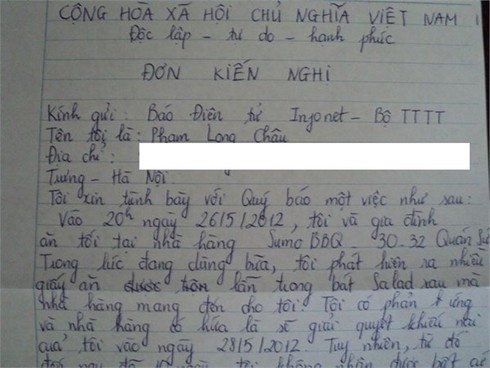 CỘNG HÒA XÃ HỘI CHỦ NGHĨA VIỆT NAM
Độc lập - tự do - hạnh phúc
ĐƠN KIẾN NGHỊ
Kính gửi: Báo Điện tử Infonet - Bộ TTTT
Tên tôi là: Phạm Long Châu
Địa chỉ:
Trưng - Hà Nội.
Tôi xin trình bày với Quý báo một việc như sau:
Vào 20h ngày 26/5/2012, tôi và gia đình
ăn tối tại nhà hàng Sumo BBQ - 30-32 Quán Sứ
Trong lúc đang dùng bữa, tôi phát hiện ra nhiều
giấy ăn lẫn trong bát Salad sau mà
nhà hàng mang đến cho tôi. Tôi có phản ứng
và nhà hàng có hứa là sẽ giải quyết khiếu nại
của tôi vào ngày 28/5/2012. Tuy nhiên, từ đó
đến nay tôi không nhận được bất cứ